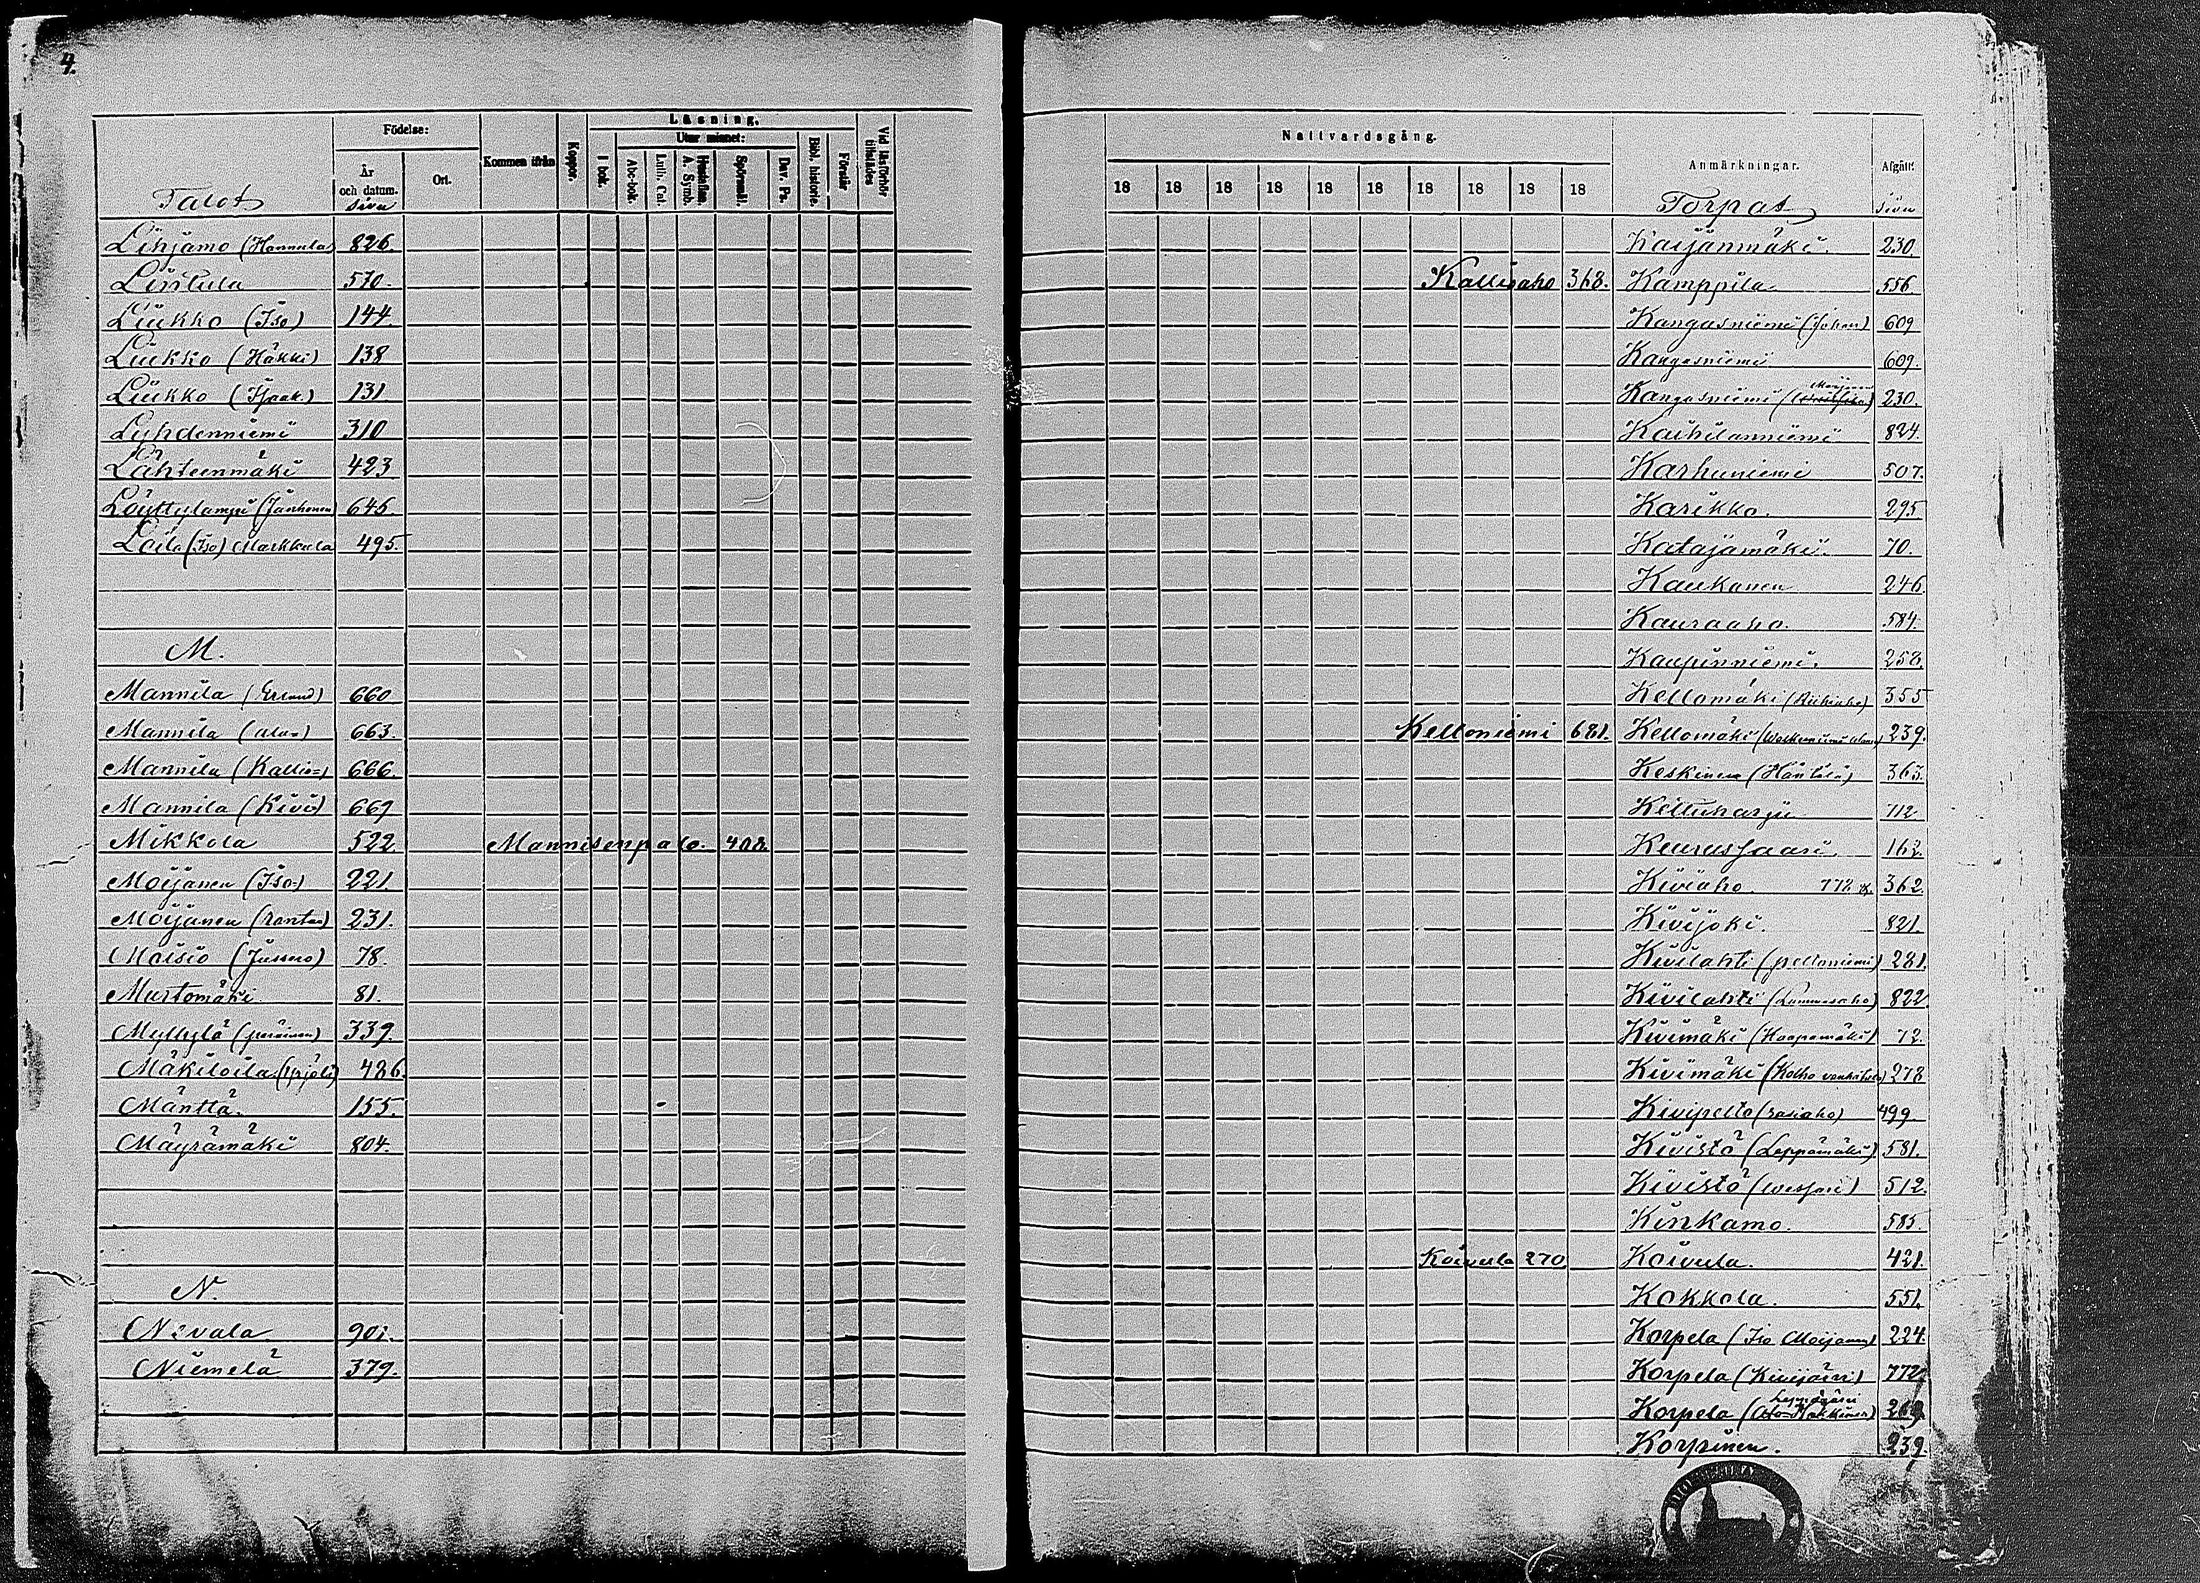 4.
Födelse:
Läsning.
Utur minnet:
År och datum.
Ort.
Kommen ifrån
Koppor.
I bok.
Abc-bok.
Luth. Cat.
Hustaflan. A. Symb.
Spörsmål.
Dav. Ps.
Bibl. historie.
Förstår
Vid läsförhör tillstädes
Talot
sivu
Liihjamo (Hannula) 826.
Lintula 570.
Liukko (Iso) 144.
Liukko (Häkki) 138
Liukko (Isaak.) 131
Lyhdenniemi 310
Lähteenmäki 423
Löyttylampi (Jänhonen 645.
Loila (Iso) Markkula 495.
M.
Mannila (Erland) 660
Mannila (ala=) 663.
Mannila (Kallio=) 666.
Mannila (Kivi=) 669
Mikkola 522 Mannisenpalo. 408.
Moijanen (Iso-) 221.
Moijanen (ranta=) 231.
Moisio (Jussero) 78.
Murtomäki 81.
Myllylä 339.
Mäkiloila (Yrjölä) 486.
Mänttä. 155.
Mäyrämäki 804.
N.
Nevala 901.
Niemelä 379.
Nattvardsgång.
Anmärkningar.
Afgått:
18 18 18 18 18 18 18 18 18 18
Torpat
sivu
Kaijanmäki. 230.
Kallioaho 368. Kamppila 556.
Kangasniemi (Johan) 609
Kangasniemi 609.
Kangasniemi 230.
Kaihilanniemi 824.
Karhuniemi 507.
Karikko. 295
Katajamäki. 70.
Kaukanen 246.
Kauraaho. 584.
Kaupinniemi. 258.
Kellomäki (Riihiaho) 355
Kelloniemi 681. Kellomäki 239.
Keskinen (Häntälä) 363.
Kettuharju 712
Keurussaari 162.
Kiviaho. 772. 362.
Kivijoki. 821.
Kivilahti (peltoniemi) 281.
Kivilahti (Lummesaho) 822
Kivimäki (Haapamäki) 72.
Kivimäki (Kolho vanhatalo) 278
Kivipelto (rasiaho) 499.
Kivistö (Leppämäki) 581.
Kivistö 512.
Kinkamo. 585.
Koivula 270 Koivula. 421.
Kokkola. 551.
Korpela (Iso Moijanen) 224.
Korpela (Kivijärvi) 772.
Korpela
Korpinen. 239.